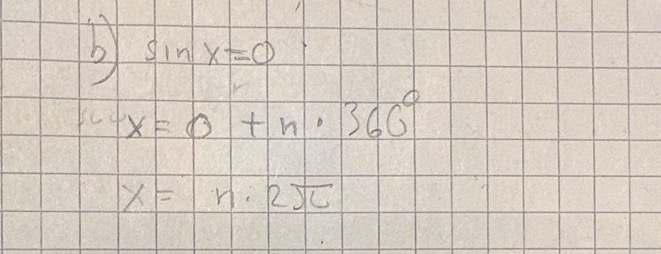 b) sin x = 0
x = 0 + n · 360°
x = n · 2π